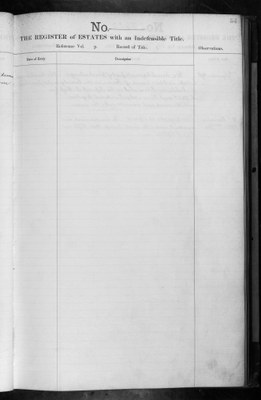 No.
THE REGISTER of ESTATES with an Indefeasible Title.
Reference Vol. p. Record of Title. Observations.
Date of Entry Description